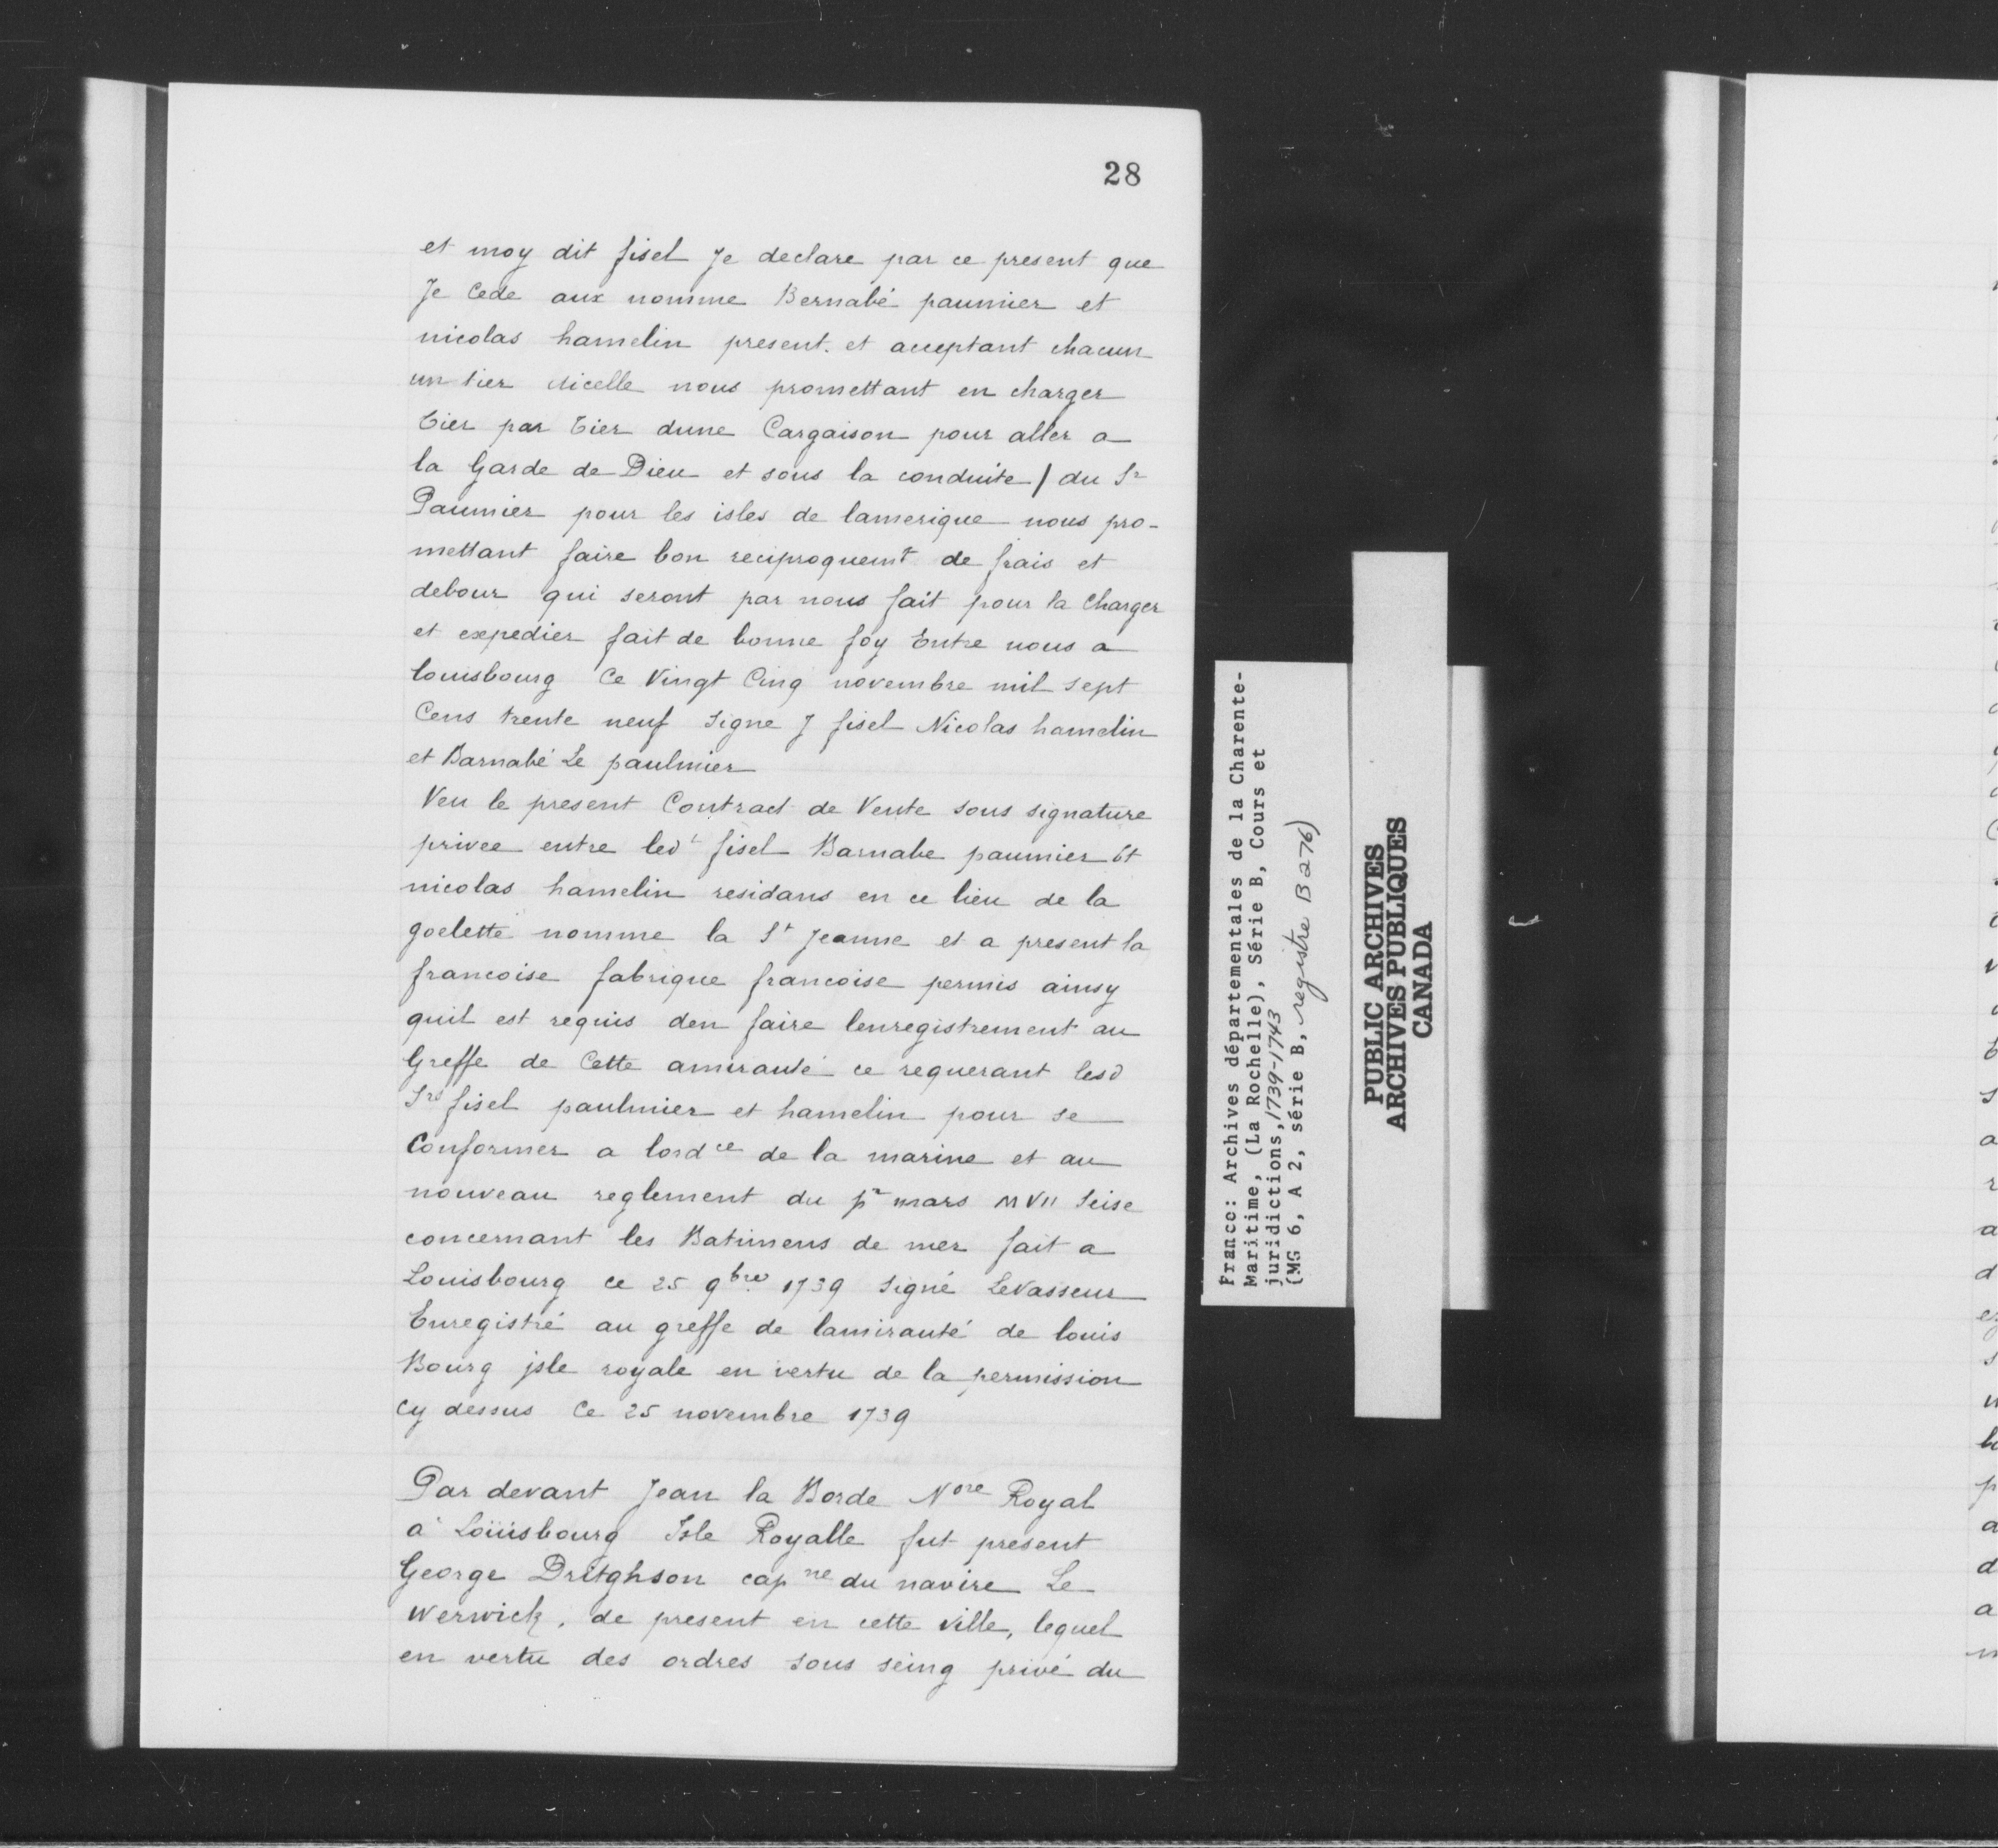 28
et moy dit fisel Je declare par ce present que
Je Cede aux nomme Bernabé paumier et
nicolas hamelin present. et acceptant chacun
un tier dicelle nous promettant en charger
tier par tier dune Cargaison pour aller a
la Garde de Dieu et sous la conduite / du Sr
Paumier pour les isles de lamerique nous pro-
mettant faire bon reciproquemt de frais et
debour qui seront par nous fait pour la Charger
et expedier fait de bonne foy Entre nous a
louisbourg Ce Vingt Cinq novembre mil sept
Cens trente neuf Signe J fisel Nicolas hamelin
et Barnabé Le paulmier
Veu le present Contract de Vente sous signature
privee entre ledt fisel Barnabe paumier Et
nicolas hamelin residans en ce lieu de la
goelette nomme la St Jeanne et a present la
francoise fabrique francoise permis ainsy
quil est requis den faire lenregistrement au
Greffe de Cette amirauté ce requerant lesd
Srs fisel paulmier et hamelin pour se
Conformer a lordce de la marine et au
nouveau reglement du pr mars MVII Seise
concernant les Batimens de mer fait a
Louisbourg ce 25 9bre 1739 Signé LeVasseur
Enregistré au greffe de lamirauté de louis
Bourg jsle royale en vertu de la permission
Cy dessus Ce 25 novembre 1739
Par devant Jean la Borde Nore Royal
a Loüisbourg Isle Royalle fut present
George Dritghson capne du navire Le
Werwick, de present en cette Ville, lequel
en vertu des ordres sous seing privé du
France: Archives départementales de la Charente-
Maritime, (La Rochelle), Série B, Cours et
juridictions, 1739-1743
(MG 6, A 2, série B, registre B 276)
PUBLIC ARCHIVES
ARCHIVES PUBLIQUES
CANADA